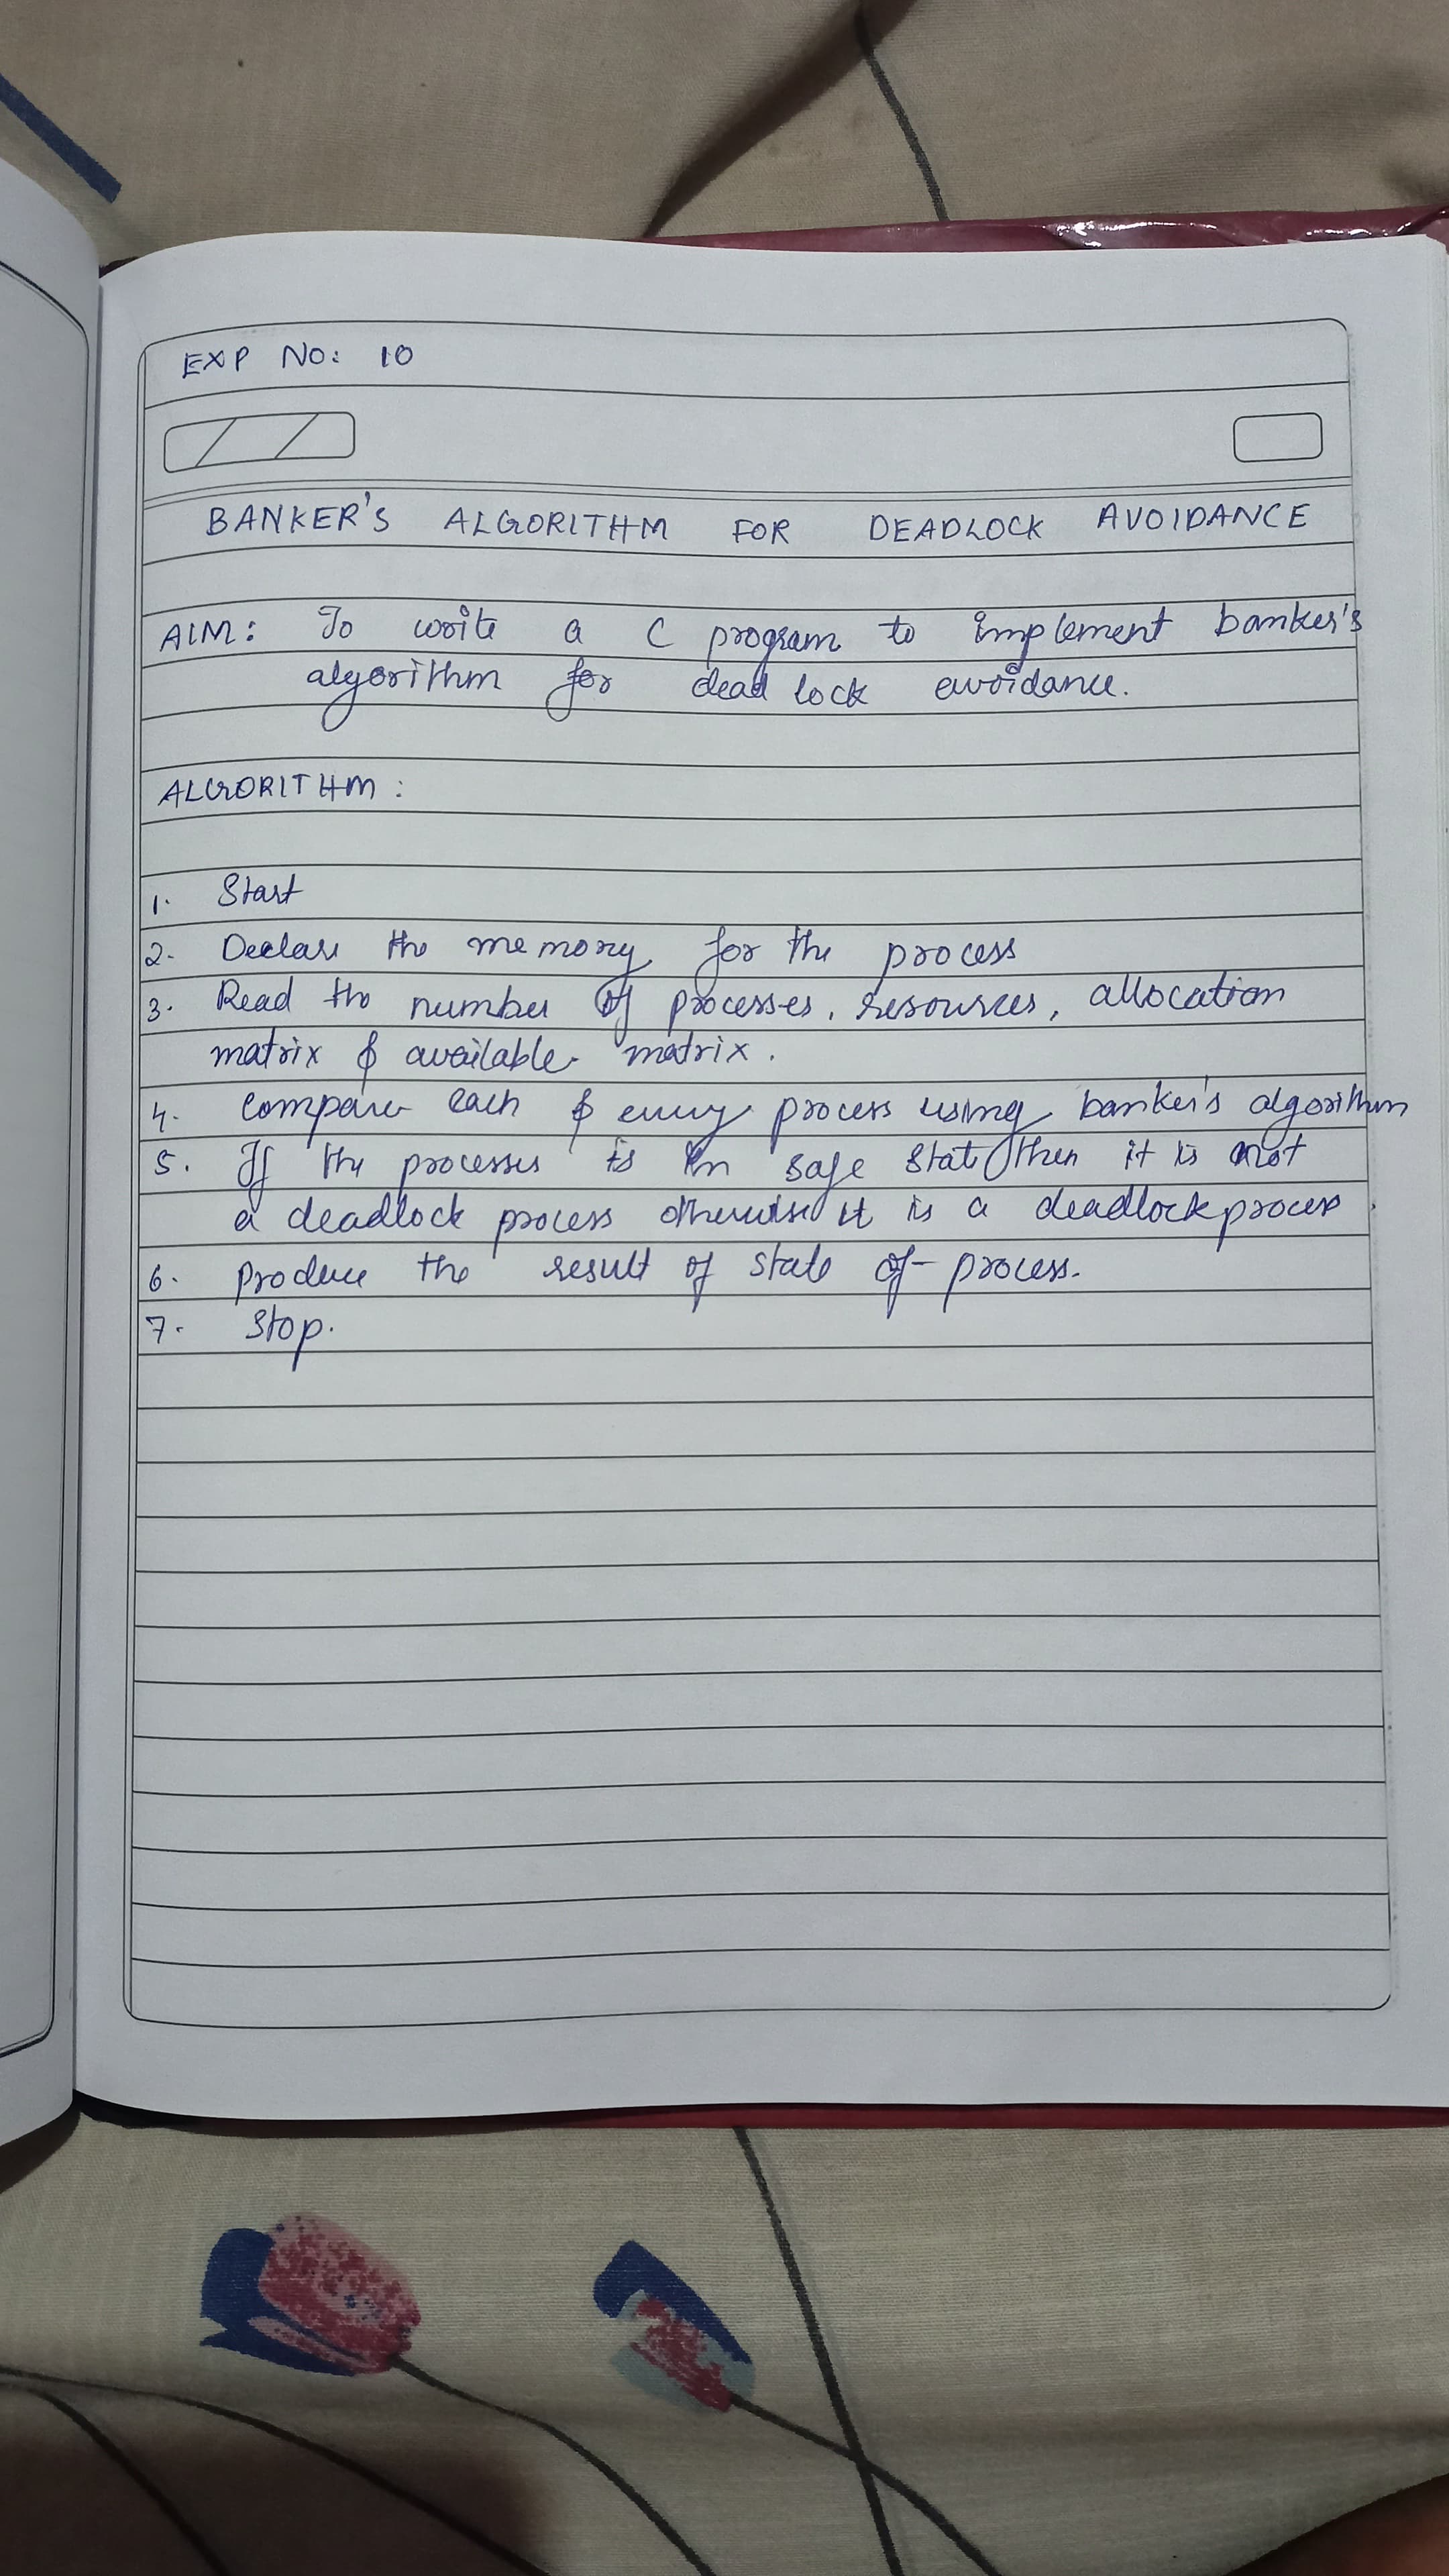 EXP NO: 10
BANKER'S ALGORITHM FOR DEADLOCK AVOIDANCE
AIM: To write a C program to implement banker's
algorithm for dead lock avoidance.
ALGORITHM:
1. Start
2. Declare the memory for the process
3. Read the number of processes, resources, allocation
matrix & available matrix.
4. Compare each & every process using banker's algorithm
5. If the processes is in safe state then it is not
a deadlock process otherwise it is a deadlock process
6. produce the result of state of process.
7. Stop.